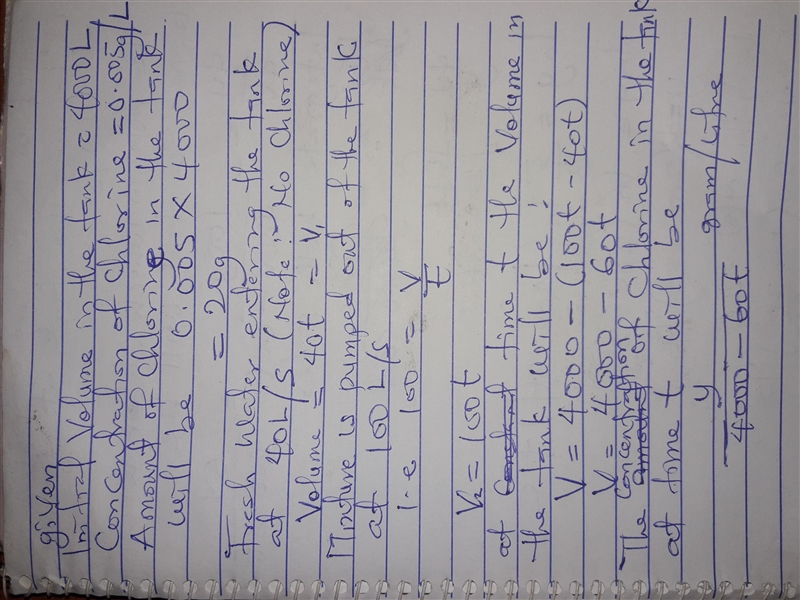 given
Initial Volume in the tank = 4000L
Concentration of Chlorine = 0.005g/L
Amount of Chlorine in the tank
will be 0.005 X 4000
= 20g
Fresh Water entering the tank
at 40L/S (Note: No Chlorine)
Volume = 40t = V₁
Mixture is pumped out of the tank
at 100 L/S
i.e 100 = V/t
V₂ = 100t
at Constant time t the Volume in
the tank will be:
V = 4000 - (100t - 40t)
V = 4000 - 60t
The Concentration amount of Chlorine in the tank
at time t will be
y/(4000 - 60t) gram/litre